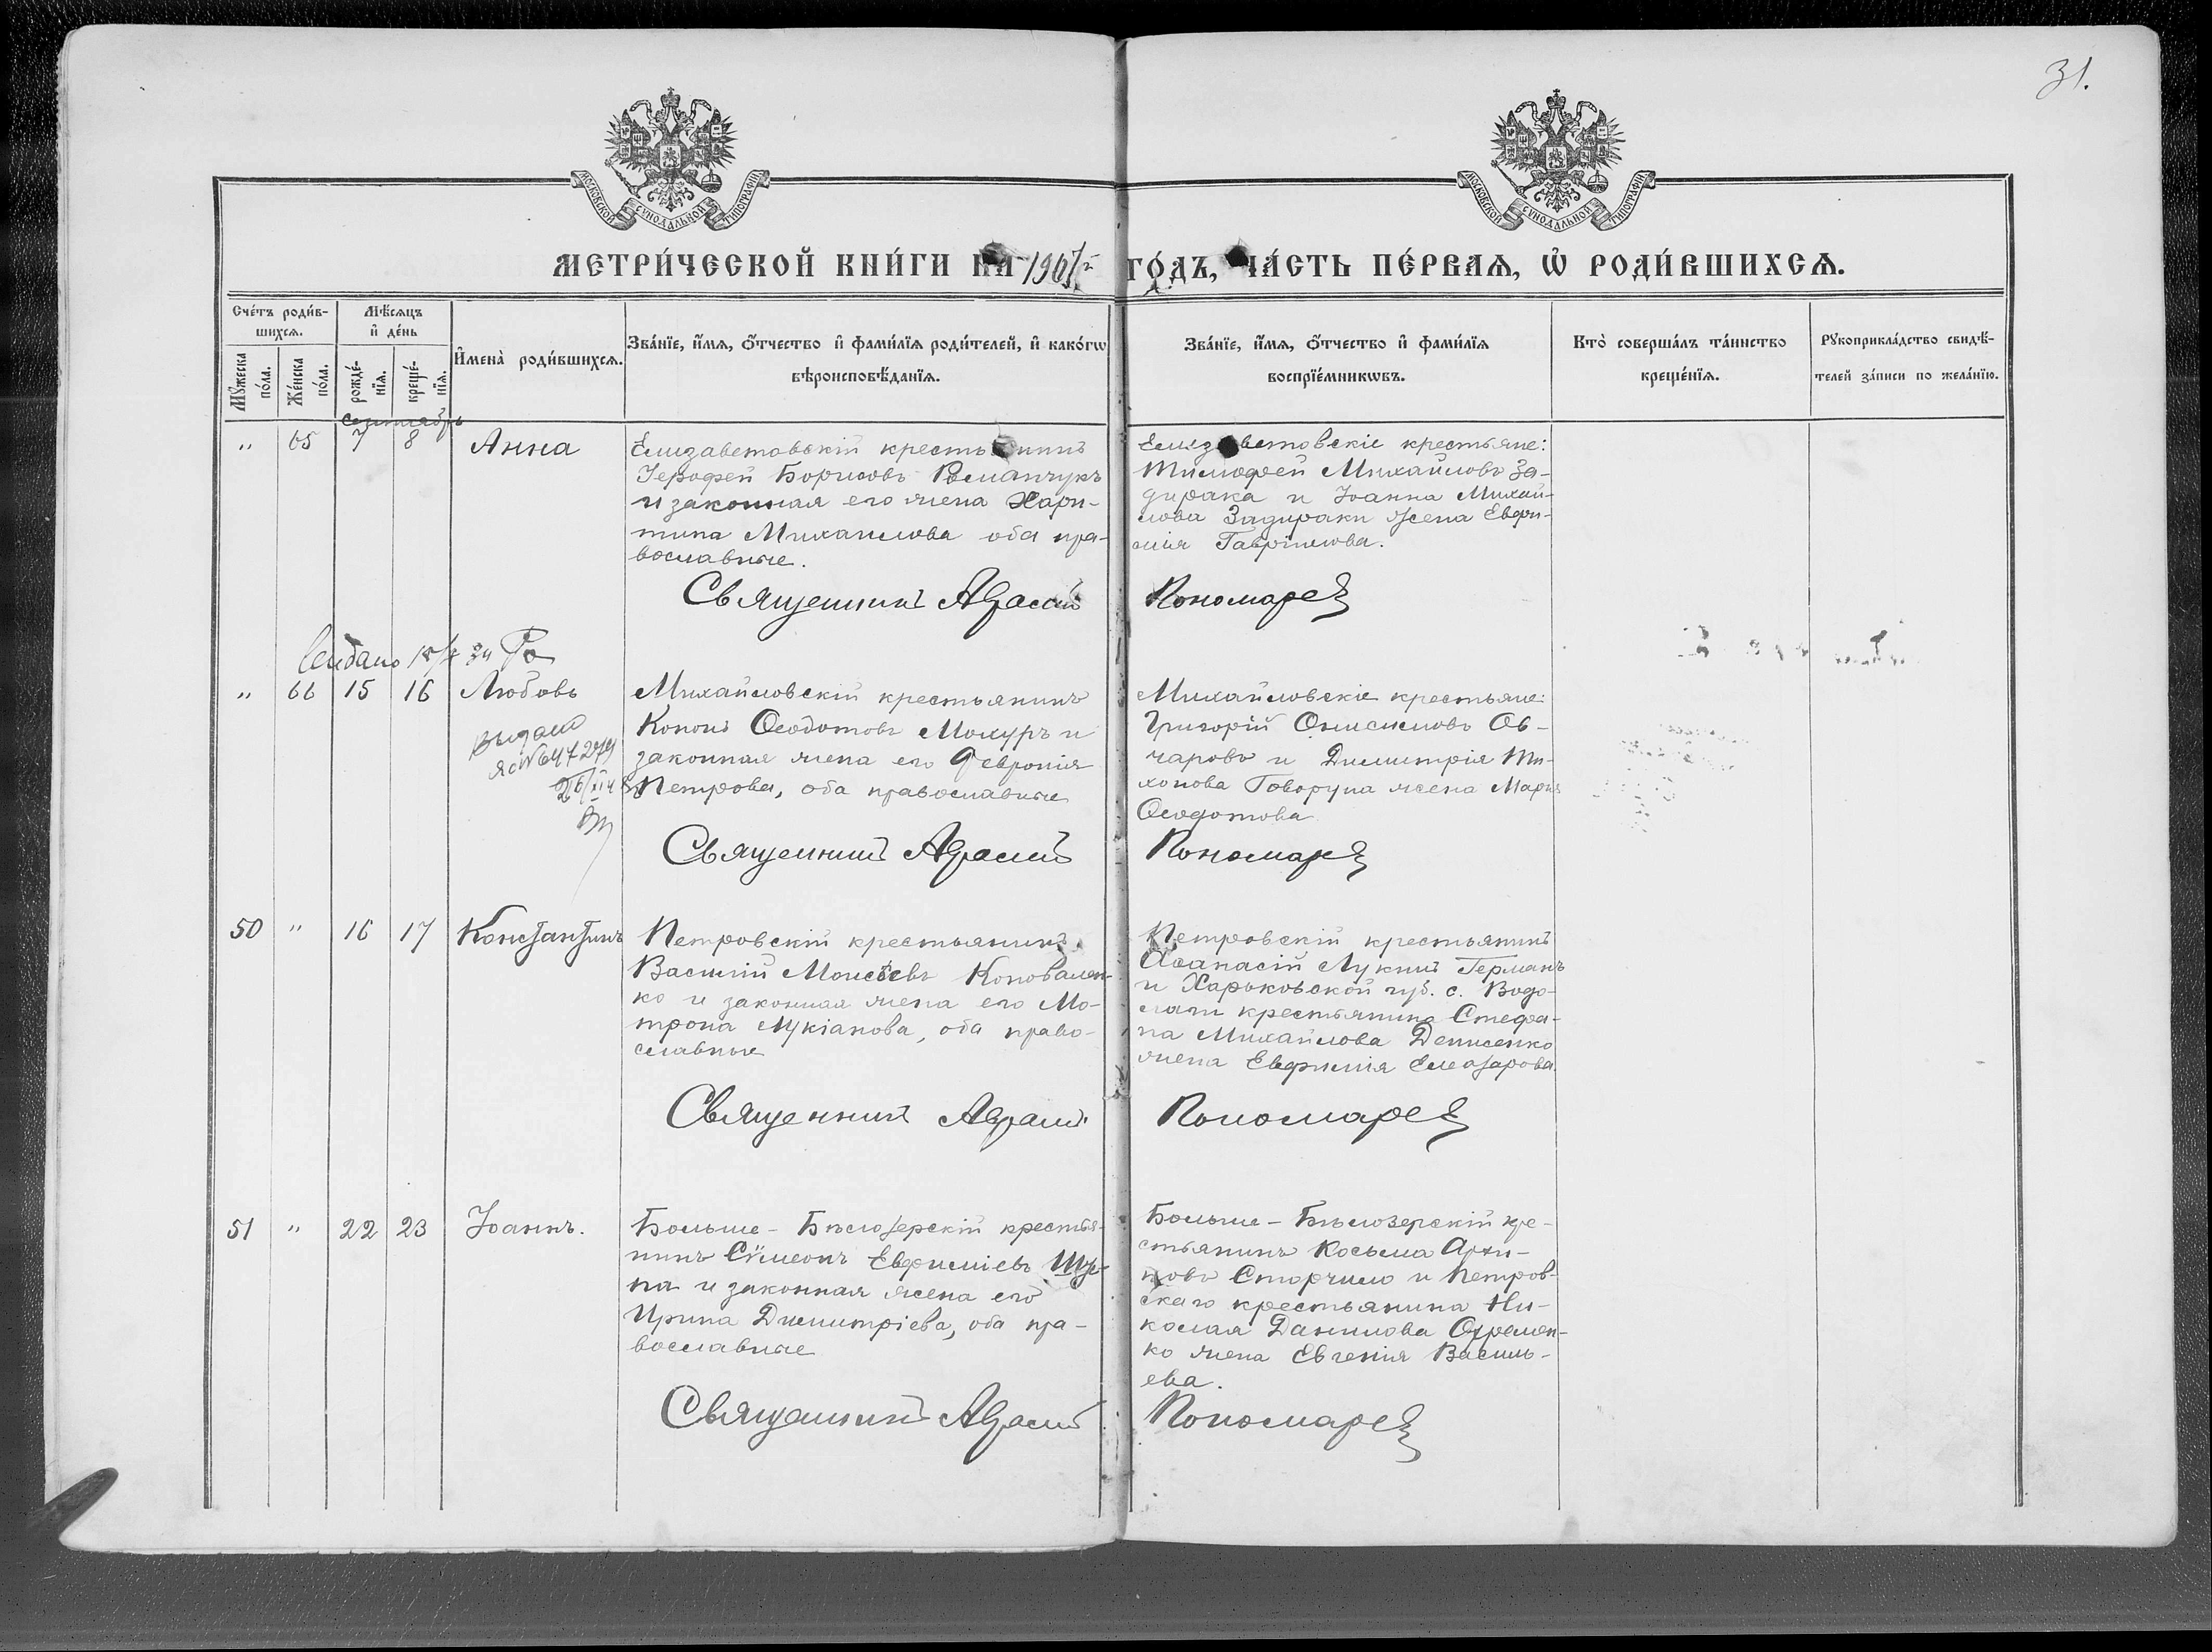 31.
МОСКОВСКОЙ СѴНОДАЛЬНОЙ ТИПОГРАФІИ
МОСКОВСКОЙ СѴНОДАЛЬНОЙ ТИПОГРАФІИ
МЕТРИ́ЧЕСКОЙ КНИ́ГИ НА 1907й ГО́ДЪ, ЧА́СТЬ ПЕ́РВАѦ, Ѡ҆ РОДИ́ВШИХСѦ.
Сче́тъ роди́в-
шихсѧ.
Мꙋ́жеска по́ла.
Же́нска по́ла.
Мѣ́сѧцъ
и҆ де́нь
рожде́-
нїѧ.
креще́-
нїѧ.
И҆мена̀ роди́вшихсѧ.
Зва́нїе, и҆́мѧ, ѻ҆́тчество и҆ фами́лїѧ роди́телей, и҆ како́гѡ
вѣроисповѣ́данїѧ.
Зва́нїе, и҆́мѧ, ѻ҆́тчество и҆ фами́лїѧ
воспрїе́мникѡвъ.
Кто̀ соверша́лъ та́инство
креще́нїѧ.
Рꙋкоприкла́дство свидѣ́-
телей за́писи по жела́нїю.
сентябрь
" 65 7 8 Анна
Елизаветовскій крестьянинъ
Іерофей Борисовъ Романчукъ
и законная его жена Хари-
тина Михаилова оба пра-
вославные.
Елизаветовскіе крестьяне:
Тимофей Михайловъ За-
дирака и Іоанна Михай-
лова Задираки жена Евфи-
мія Гавріилова.
Священникъ Пономарев
" 66 15 16 Любовь
выдан
Михайловскій крестьянинъ
Кононъ Ѳеодотовъ Мокуръ и
законная жена его Февронія
Петрова, оба православные
Михайловскіе крестьяне:
Григорій Онисимовъ Ов-
чаровъ и Димитрія Ти-
хонова Говоруна жена Марія
Ѳеодотова
Священникъ Пономарев
50 " 16 17 Константинъ
Петровскій крестьянинъ
Василій Моисѣевъ Коновален-
ко и законная жена его Мо-
трона Лукіанова, оба право-
славные
Петровскій крестьянинъ
Аѳанасій Лукинъ Германъ
и Харьковской губ. с. Водо-
лаги крестьянина Стефа-
на Михайлова Денисенко
жена Евфимія Елеазарова.
Священникъ Пономарев
51 " 22 23 Іоаннъ.
Больше-Бѣлозерскій крестья-
нинъ Сѵмеонъ Евфиміевъ Щу-
па и законная жена его
Ирина Димитріева, оба пра-
вославные
Больше-Бѣлозерскій кре-
стьянинъ Косьма Архи-
повъ Сторчило и Петров-
скаго крестьянина Ни-
колая Данилова Охремен-
ко жена Евгенія Василь-
ева.
Священникъ Пономарев